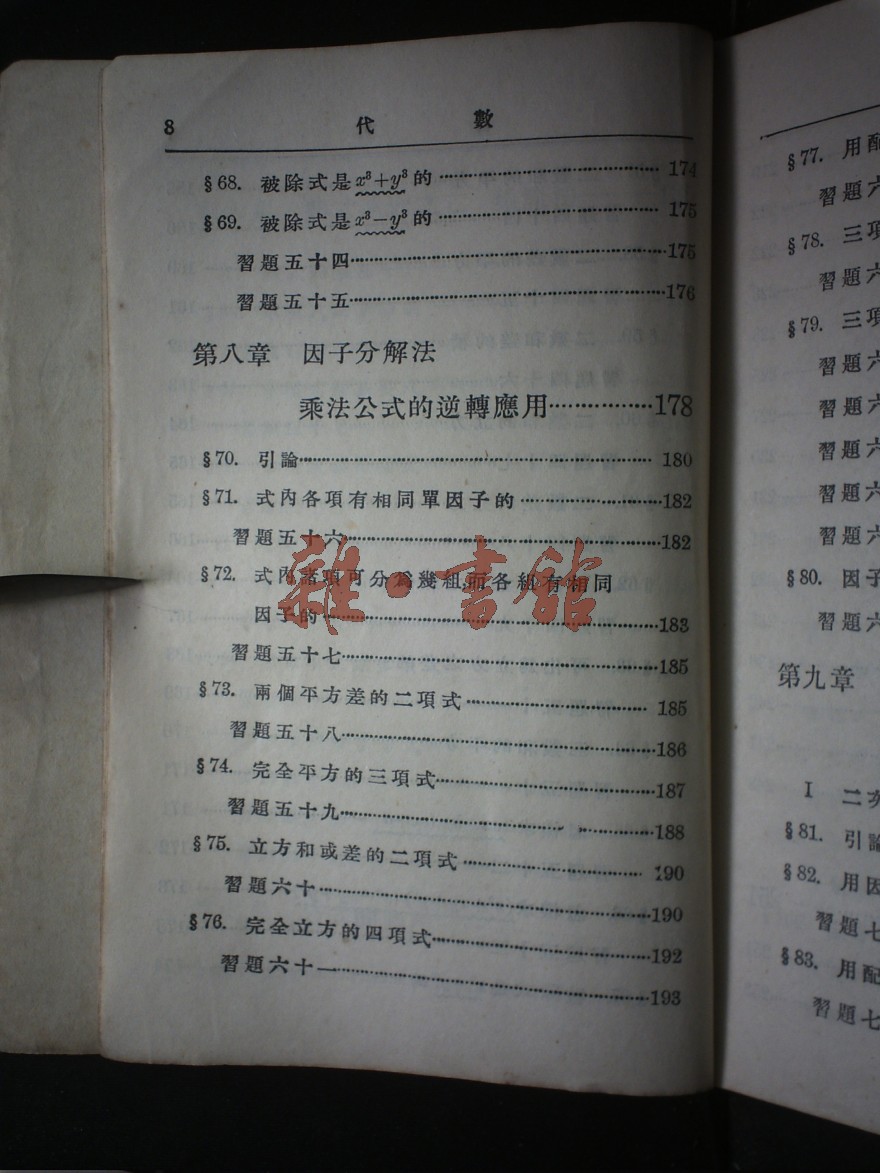 8 代 數
§68. 被除式是x³+y³的 174
§69. 被除式是x³-y³的 175
習題五十四 175
習題五十五 176
第八章 因子分解法
乘法公式的逆轉應用 178
§70. 引論 180
§71. 式內各項有相同單因子的 182
習題五十六 182
§72. 式內諸項可分爲幾組,而各組有相同
因子的 183
習題五十七 185
§73. 兩個平方差的二項式 185
習題五十八 186
§74. 完全平方的三項式 187
習題五十九 188
§75. 立方和或差的二項式 190
習題六十 190
§76. 完全立方的四項式 192
習題六十一 193
雜·書館
§77. 用配
習題六
§78. 三項
習題六
§79. 三項
習題六
習題六
習題六
習題六
習題六
§80. 因子
習題六
第九章
I 二次
§81. 引論
§82. 用因
習題七
§83. 用配
習題七